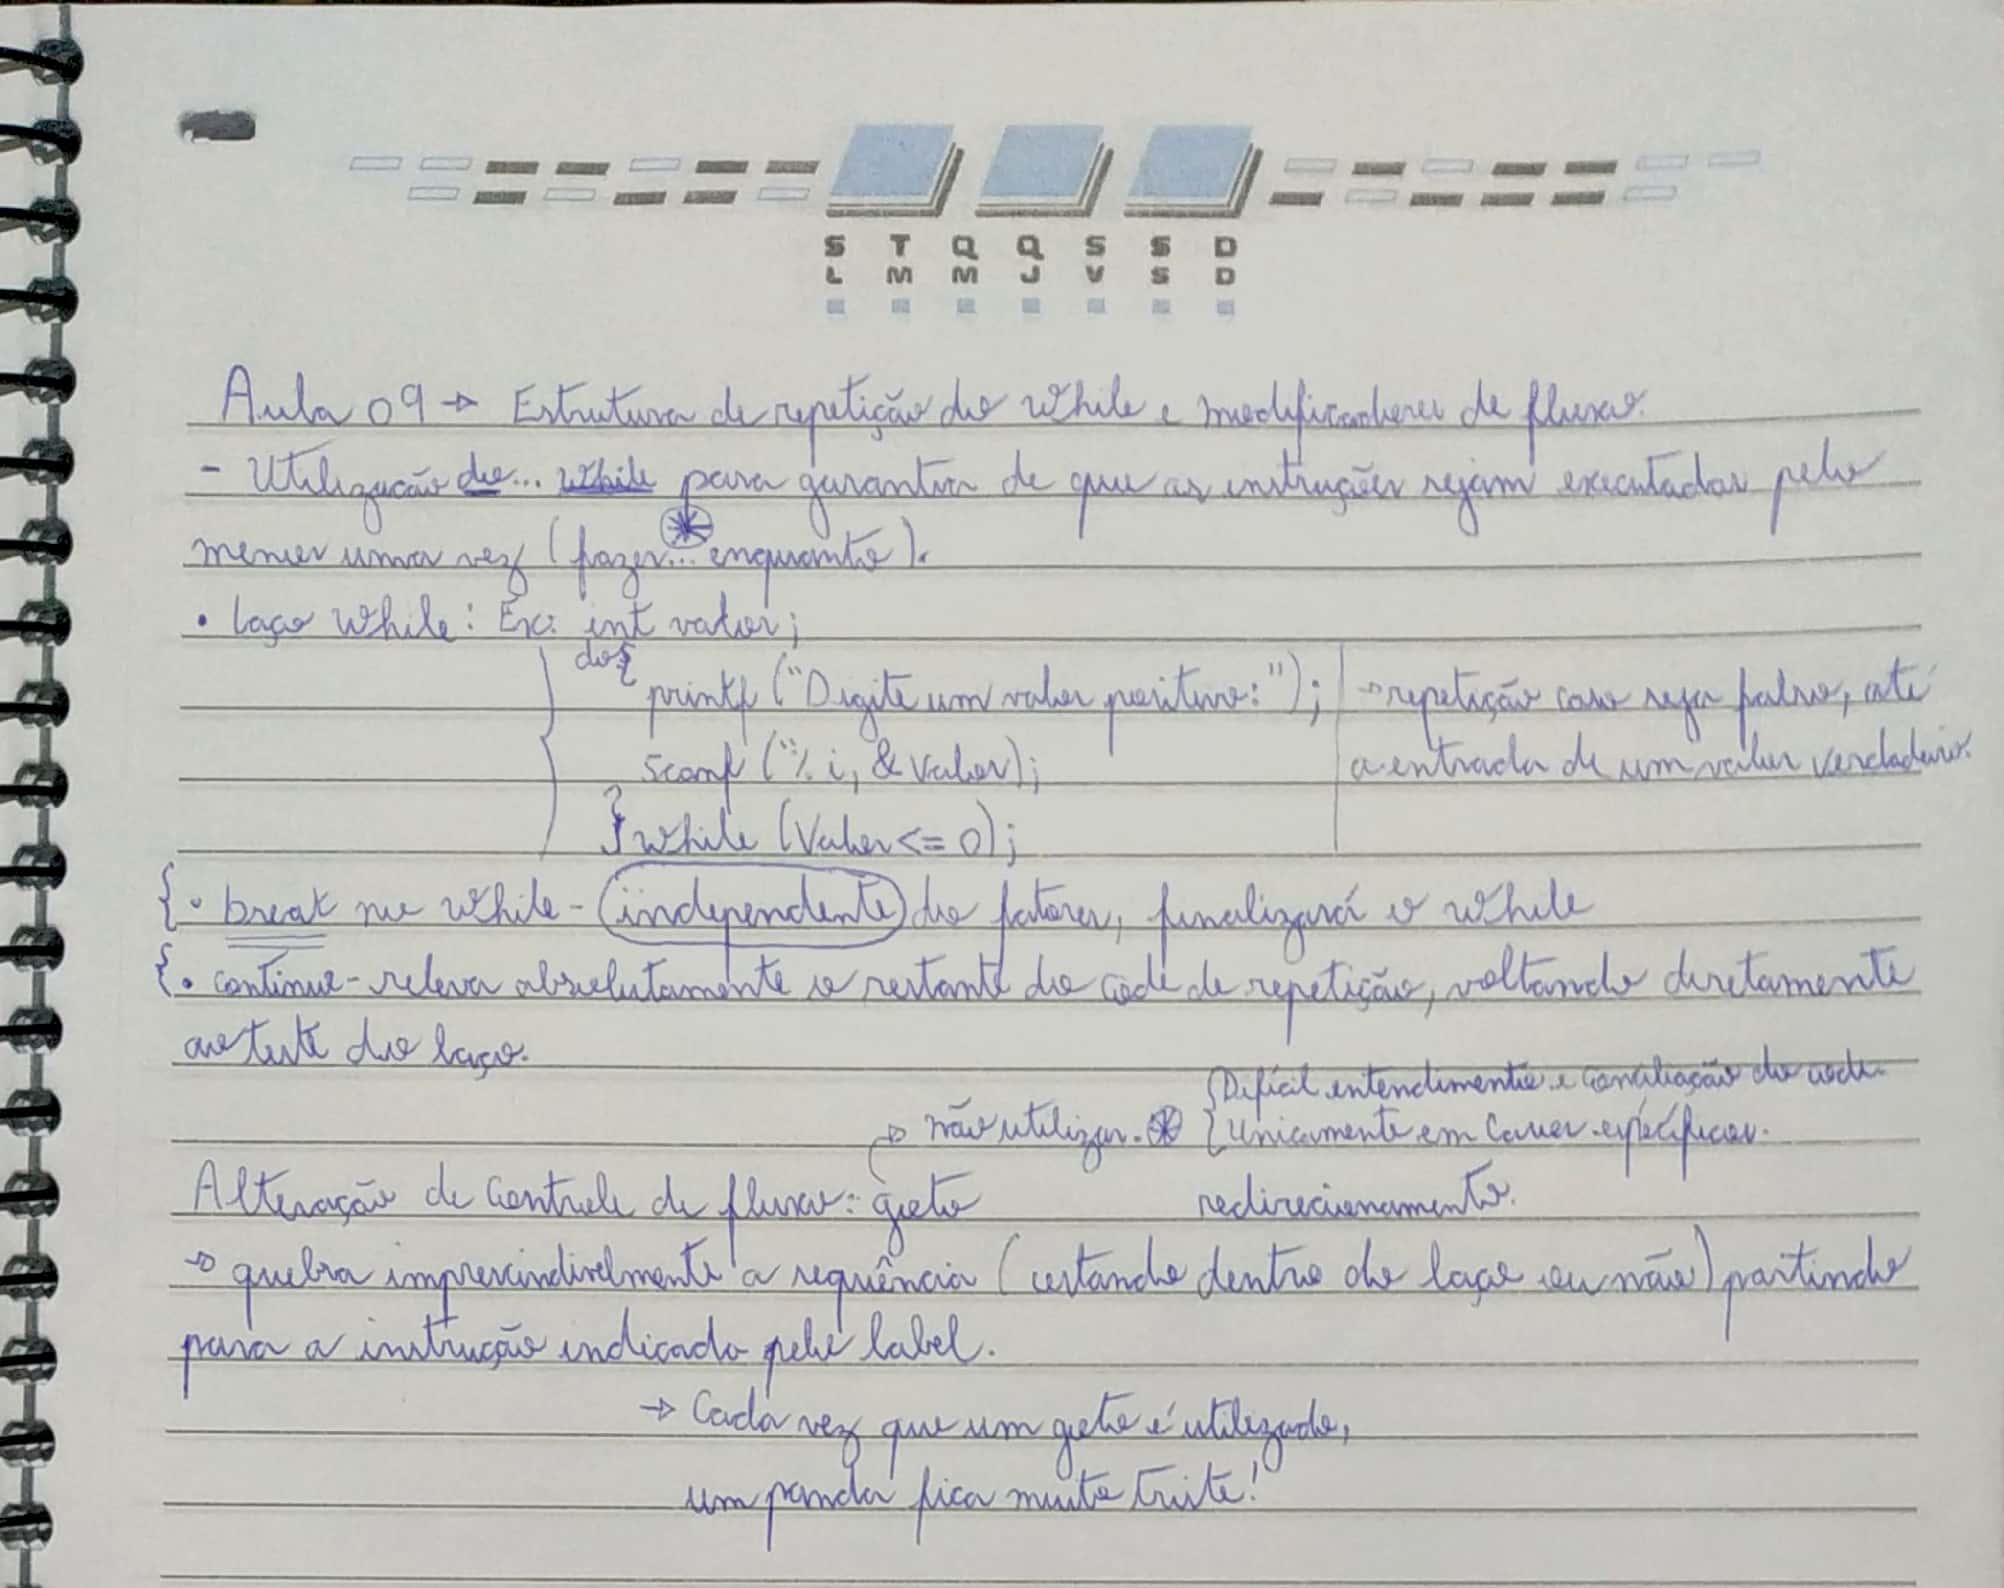 S T Q Q S S D
L M M J V S D
Aula 09 → Estrutura de repetição do while e modificadores de fluxo.
- Utilização do... while para garantir de que as instruções sejam executadas pelo
menos uma vez (fazer... enquanto).
• laço while: Ex: int valor;
do{
printf ("Digite um valor positivo:"); → repetição caso seja falso, até
scanf ("%i, &valor); a entrada de um valor verdadeiro.
} while (Valor <= 0);
{• break no while - independente do fatores, finalizará o while
{• continue - releva absolutamente o restante do codi de repetição, voltando diretamente
ao teste do laço.
{Difícil entendimento e conciliação do codi.
→ não utilizar. * {Unicamente em casos específicos.
Alteração de controle de fluxo: goto redirecionamento.
→ quebra imprescindivelmente a sequência (estando dentro do laço ou não) partindo
para a instrução indicado pelo label.
→ Cada vez que um goto é utilizado,
um panda fica muito triste!